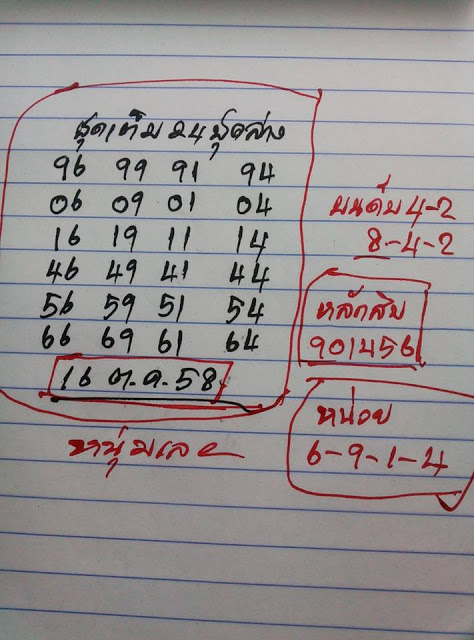 ชุดเต็ม 24 ชุดล่าง
96 99 91 94
06 09 01 04
16 19 11 14
46 49 41 44
56 59 51 54
66 69 61 64
16 ต.ค. 58
หนุ่มเลย
บนดับ 4-2
8-4-2
หลักสิบ
901456
หน่วย
6-9-1-4